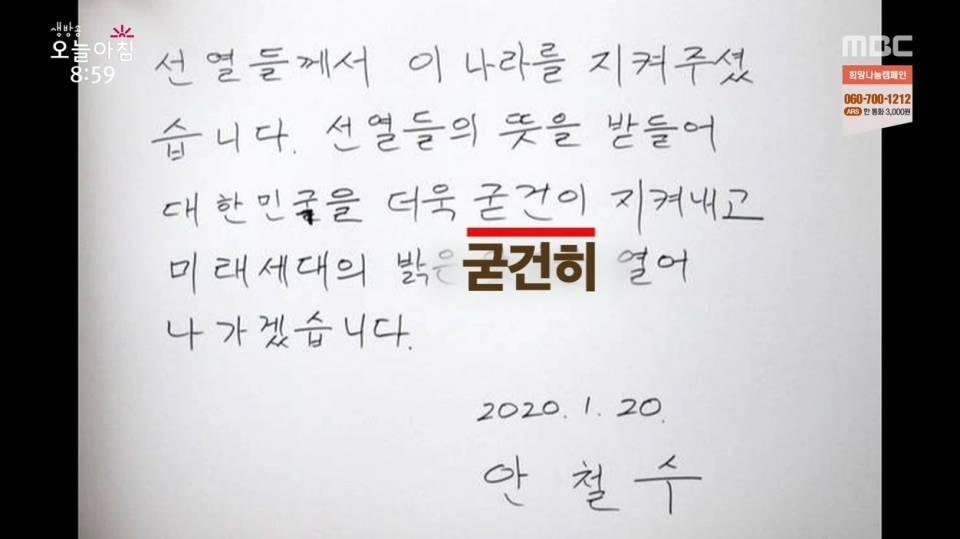 생방송
오늘아침
8:59
MBC
희망나눔캠페인
060-700-1212
ARS 한 통화 3,000원
선열들께서 이 나라를 지켜주셨
습니다. 선열들의 뜻을 받들어
대한민국을 더욱 굳건이 지켜내고
미래세대의 밝은 열어
굳건히
나가겠습니다.
2020. 1. 20.
안 철 수